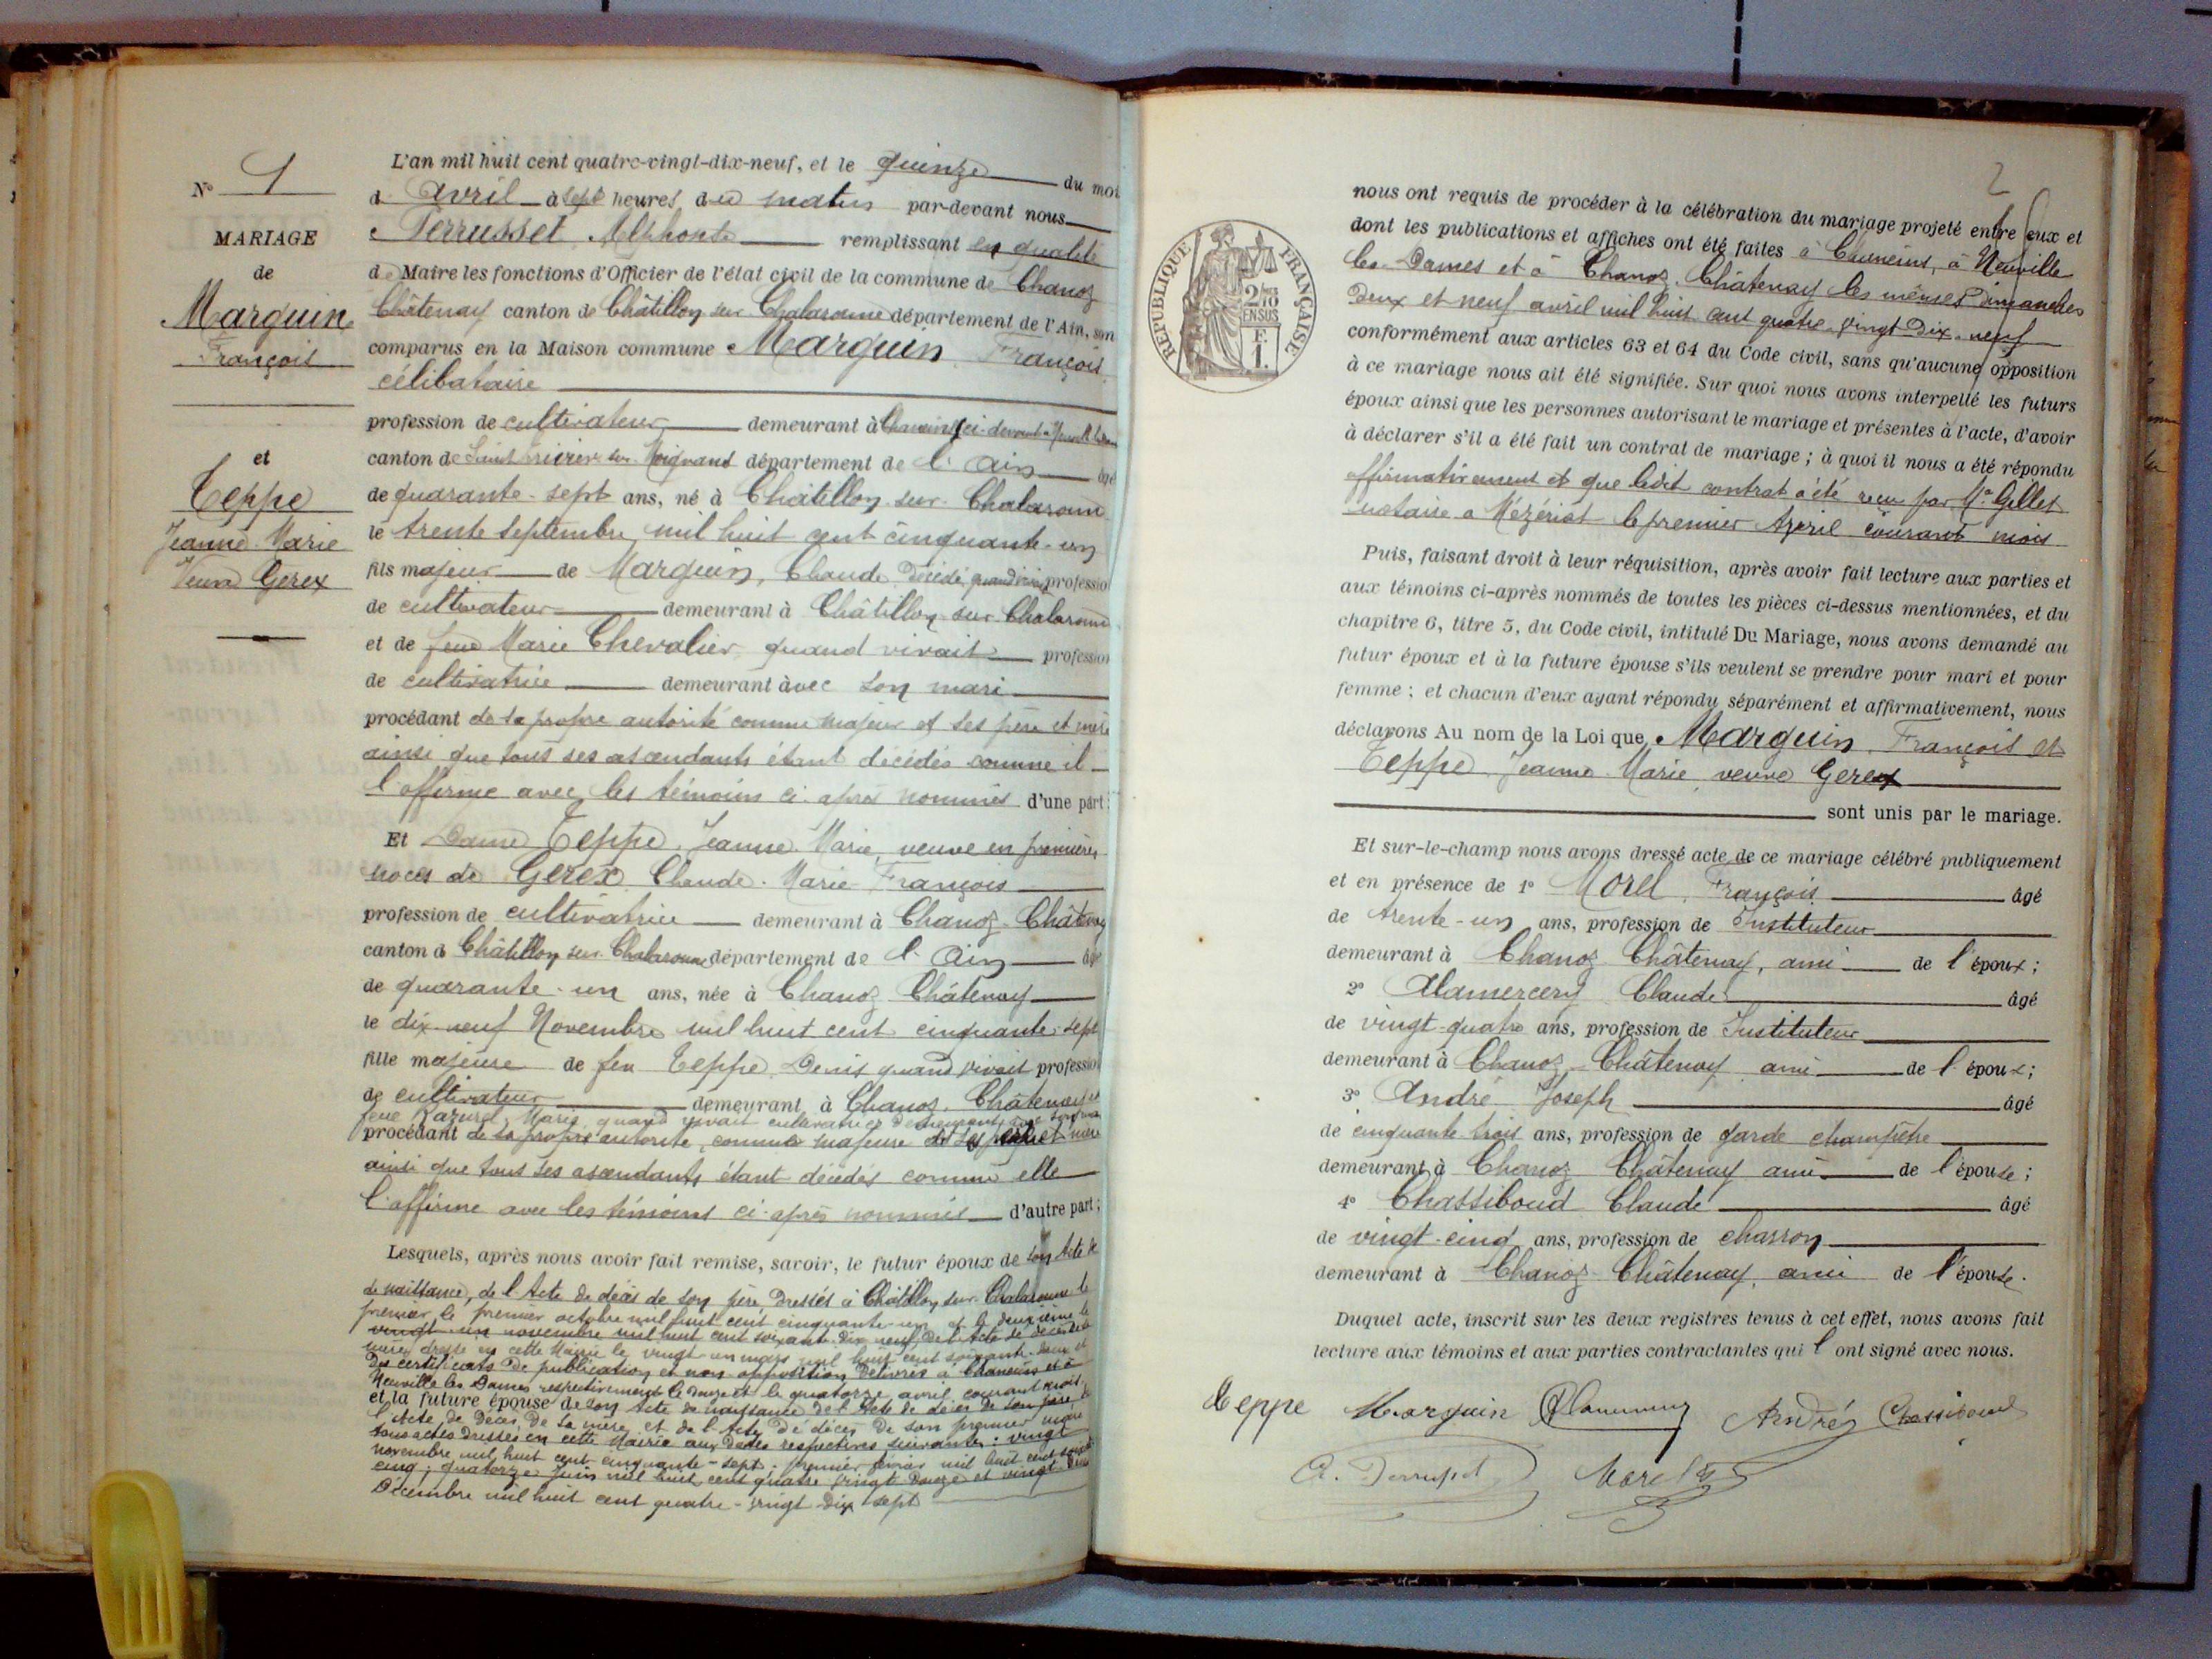 N° 1
MARIAGE
de
Marguin
François
et
Teppe
Jeanne Marie
Veuve Gerex
L'an mil huit cent quatre-vingt-dix-neuf, et le quinze du moi
d avril à sept heures du matin par-devant nous
Terrusset Alphonse remplissant en qualité
de Maire les fonctions d'Officier de l'état civil de la commune de Chanoz
Châtenay canton de Châtillon sur Chalaronne département de l'Ain, son
comparus en la Maison commune Marguin François
célibataire
profession de cultivateur demeurant à Chaneins ci-devant à
canton de Saint département de l'Ain âgé
de quarante-sept ans, né à Châtillon sur Chalaronne
le trente septembre mil huit cent cinquante-un
fils majeur de Marguin, Claude, décédé, quand vivait professio
de cultivateur demeurant à Châtillon sur Chalaronne
et de feue Marie Chevalier quand vivait profession
de cultivatrice demeurant avec son mari
procédant de sa propre autorité comme majeur et ses père et mère
ainsi que tous ses ascendants étant décédés comme il
l'affirme avec les témoins ci-après nommés d'une part;
Et Dame Teppe Jeanne Marie, veuve en premières
noces de Gerex Claude Marie François
profession de cultivatrice demeurant à Chanoz-Châtenay
canton de Châtillon sur Chalaronne département de l'Ain âgé
de quarante-un ans, née à Chanoz Châtenay
le dix-neuf Novembre mil huit cent cinquante-sept
fille majeure de feu Teppe Denis quand vivait profession
de cultivateur demeurant à Chanoz Châtenay et
feue Marie quand vivait cultivatrice demeurant avec son mari
procédant de sa propre autorité, comme majeure et ses père et mère
ainsi que tous ses ascendants étant décédés comme elle
l'affirme avec les témoins ci-après nommés d'autre part;
Lesquels, après nous avoir fait remise, savoir, le futur époux de son Acte de
de naissance, de l'Acte de décès de son père, dressés à Châtillon sur Chalaronne le
premier, le premier octobre mil huit cent cinquante-un et le deuxième le
vingt-un novembre mil huit cent soixante-dix-neuf, de l'Acte de décès de sa
mère, dressé en cette Mairie le vingt-un mars mil huit cent soixante-deux et
des certificats de publication et non opposition délivrés à Chaneins et à
Neuville les Dames respectivement le douze et le quatorze avril courant mois
et la future épouse de son Acte de naissance de l'Acte de décès de son père, de
l'Acte de décès de sa mère et de l'Acte de décès de son premier mari
tous actes dressés en cette Mairie aux dates respectives suivantes: vingt
novembre mil huit cent cinquante-sept, premier février mil huit cent soixante
cinq, quatorze juin mil huit cent quatre vingt douze et vingt-deux
Décembre mil huit cent quatre-vingt-dix-sept
2
REPUBLIQUE FRANÇAISE
2/10
EN SUS
F.
1.
nous ont requis de procéder à la célébration du mariage projeté entre eux et
dont les publications et affiches ont été faites à Chaneins, à Neuville
les Dames et à Chanoz Châtenay les mêmes Dimanches
deux et neuf avril mil huit cent quatre-vingt Dix-neuf
conformément aux articles 63 et 64 du Code civil, sans qu'aucune opposition
à ce mariage nous ait été signifiée. Sur quoi nous avons interpellé les futurs
époux ainsi que les personnes autorisant le mariage et présentes à l'acte, d'avoir
à déclarer s'il a été fait un contrat de mariage; à quoi il nous a été répondu
affirmativement et que ledit contrat a été reçu par Me Gillet
notaire à Mézériat le premier Avril courant mois
Puis, faisant droit à leur réquisition, après avoir fait lecture aux parties et
aux témoins ci-après nommés de toutes les pièces ci-dessus mentionnées, et du
chapitre 6, titre 5, du Code civil, intitulé Du Mariage, nous avons demandé au
futur époux et à la future épouse s'ils veulent se prendre pour mari et pour
femme; et chacun d'eux ayant répondu séparément et affirmativement, nous
déclarons Au nom de la Loi que Marguin François et
Teppe Jeanne Marie veuve Gerex
sont unis par le mariage.
Et sur-le-champ nous avons dressé acte de ce mariage célébré publiquement
et en présence de 1° Morel François âgé
de trente-un ans, profession de Instituteur
demeurant à Chanoz Châtenay, ami de l'époux;
2° Alamercery Claude âgé
de vingt-quatre ans, profession de Instituteur
demeurant à Chanoz-Châtenay ami de l'époux;
3° André Joseph âgé
de cinquante trois ans, profession de garde champêtre
demeurant à Chanoz Châtenay ami de l'épouse;
4° Chassiboud Claude âgé
de vingt-cinq ans, profession de charron
demeurant à Chanoz-Châtenay, ami de l'épouse.
Duquel acte, inscrit sur les deux registres tenus à cet effet, nous avons fait
lecture aux témoins et aux parties contractantes qui l'ont signé avec nous.
Teppe Marguin André Chassiboud
Morel